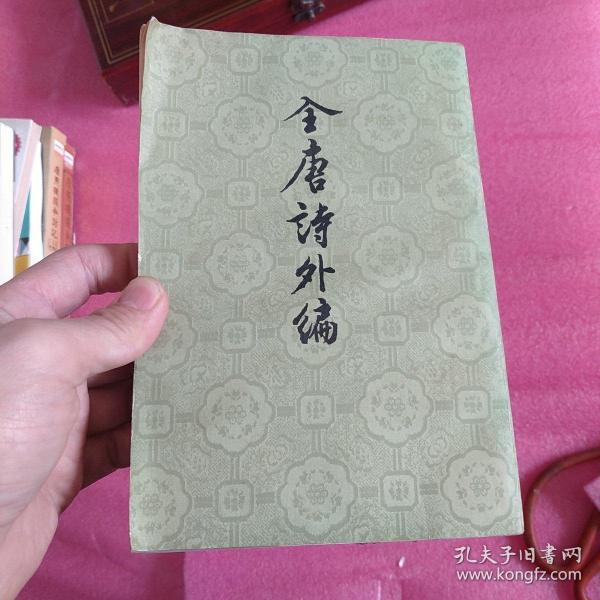 全唐詩外編
孔夫子旧書网
www.kongfz.com